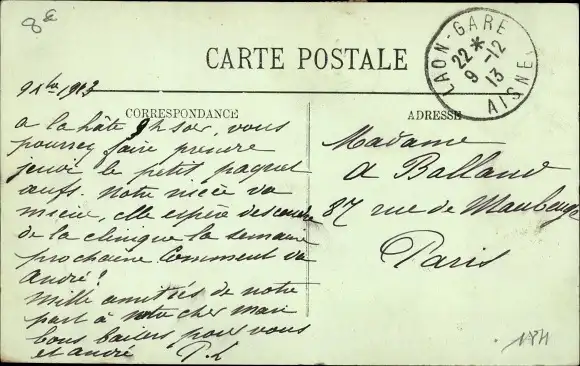 8c
LAON-GARE
22 *
9-12
13
AISNE
CARTE POSTALE
9 Xbre 1913
CORRESPONDANCE
a la hâte 9h soir, vous
pourrez faire prendre
jeudi le petit paquet
œufs. Notre nièce va
mieux, elle espère descendre
de la clinique la semaine
prochaine. Comment va
andré?
Mille amitiés de notre
part à votre cher mari
bons baisers pour vous
et andré P. L
ADRESSE
Madame
A Balland
87 rue de Maubeuge
Paris
184